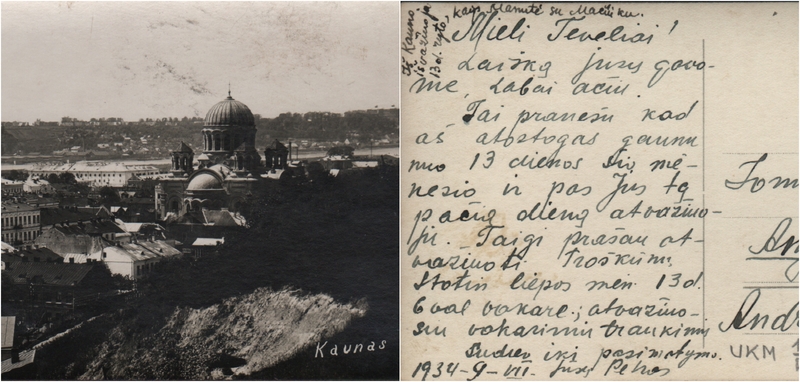 Kaunas
kaip Mamutė su Mačiku.
Iš Kauno
išvažiuoju
13 d. ryto,
Mieli Tėveliai!
Laišką jūsų gavo-
me, labai ačiu.
Tai pranešu kad
aš atostogas gaunu
nuo 13 dienos šio mė-
nesio ir pas Jus tą
pačią dieną atvažiuo-
ju. Taigi prašau at-
važiuoti Troškūnų
stotin liepos mėn. 13 d.
6 val vakare; atvažiuo-
siu vakariniu traukiniu
Sudiev iki pasimatymo.
1934-9-VII. Jūsų Petras
Tom
An
Andr
UKM